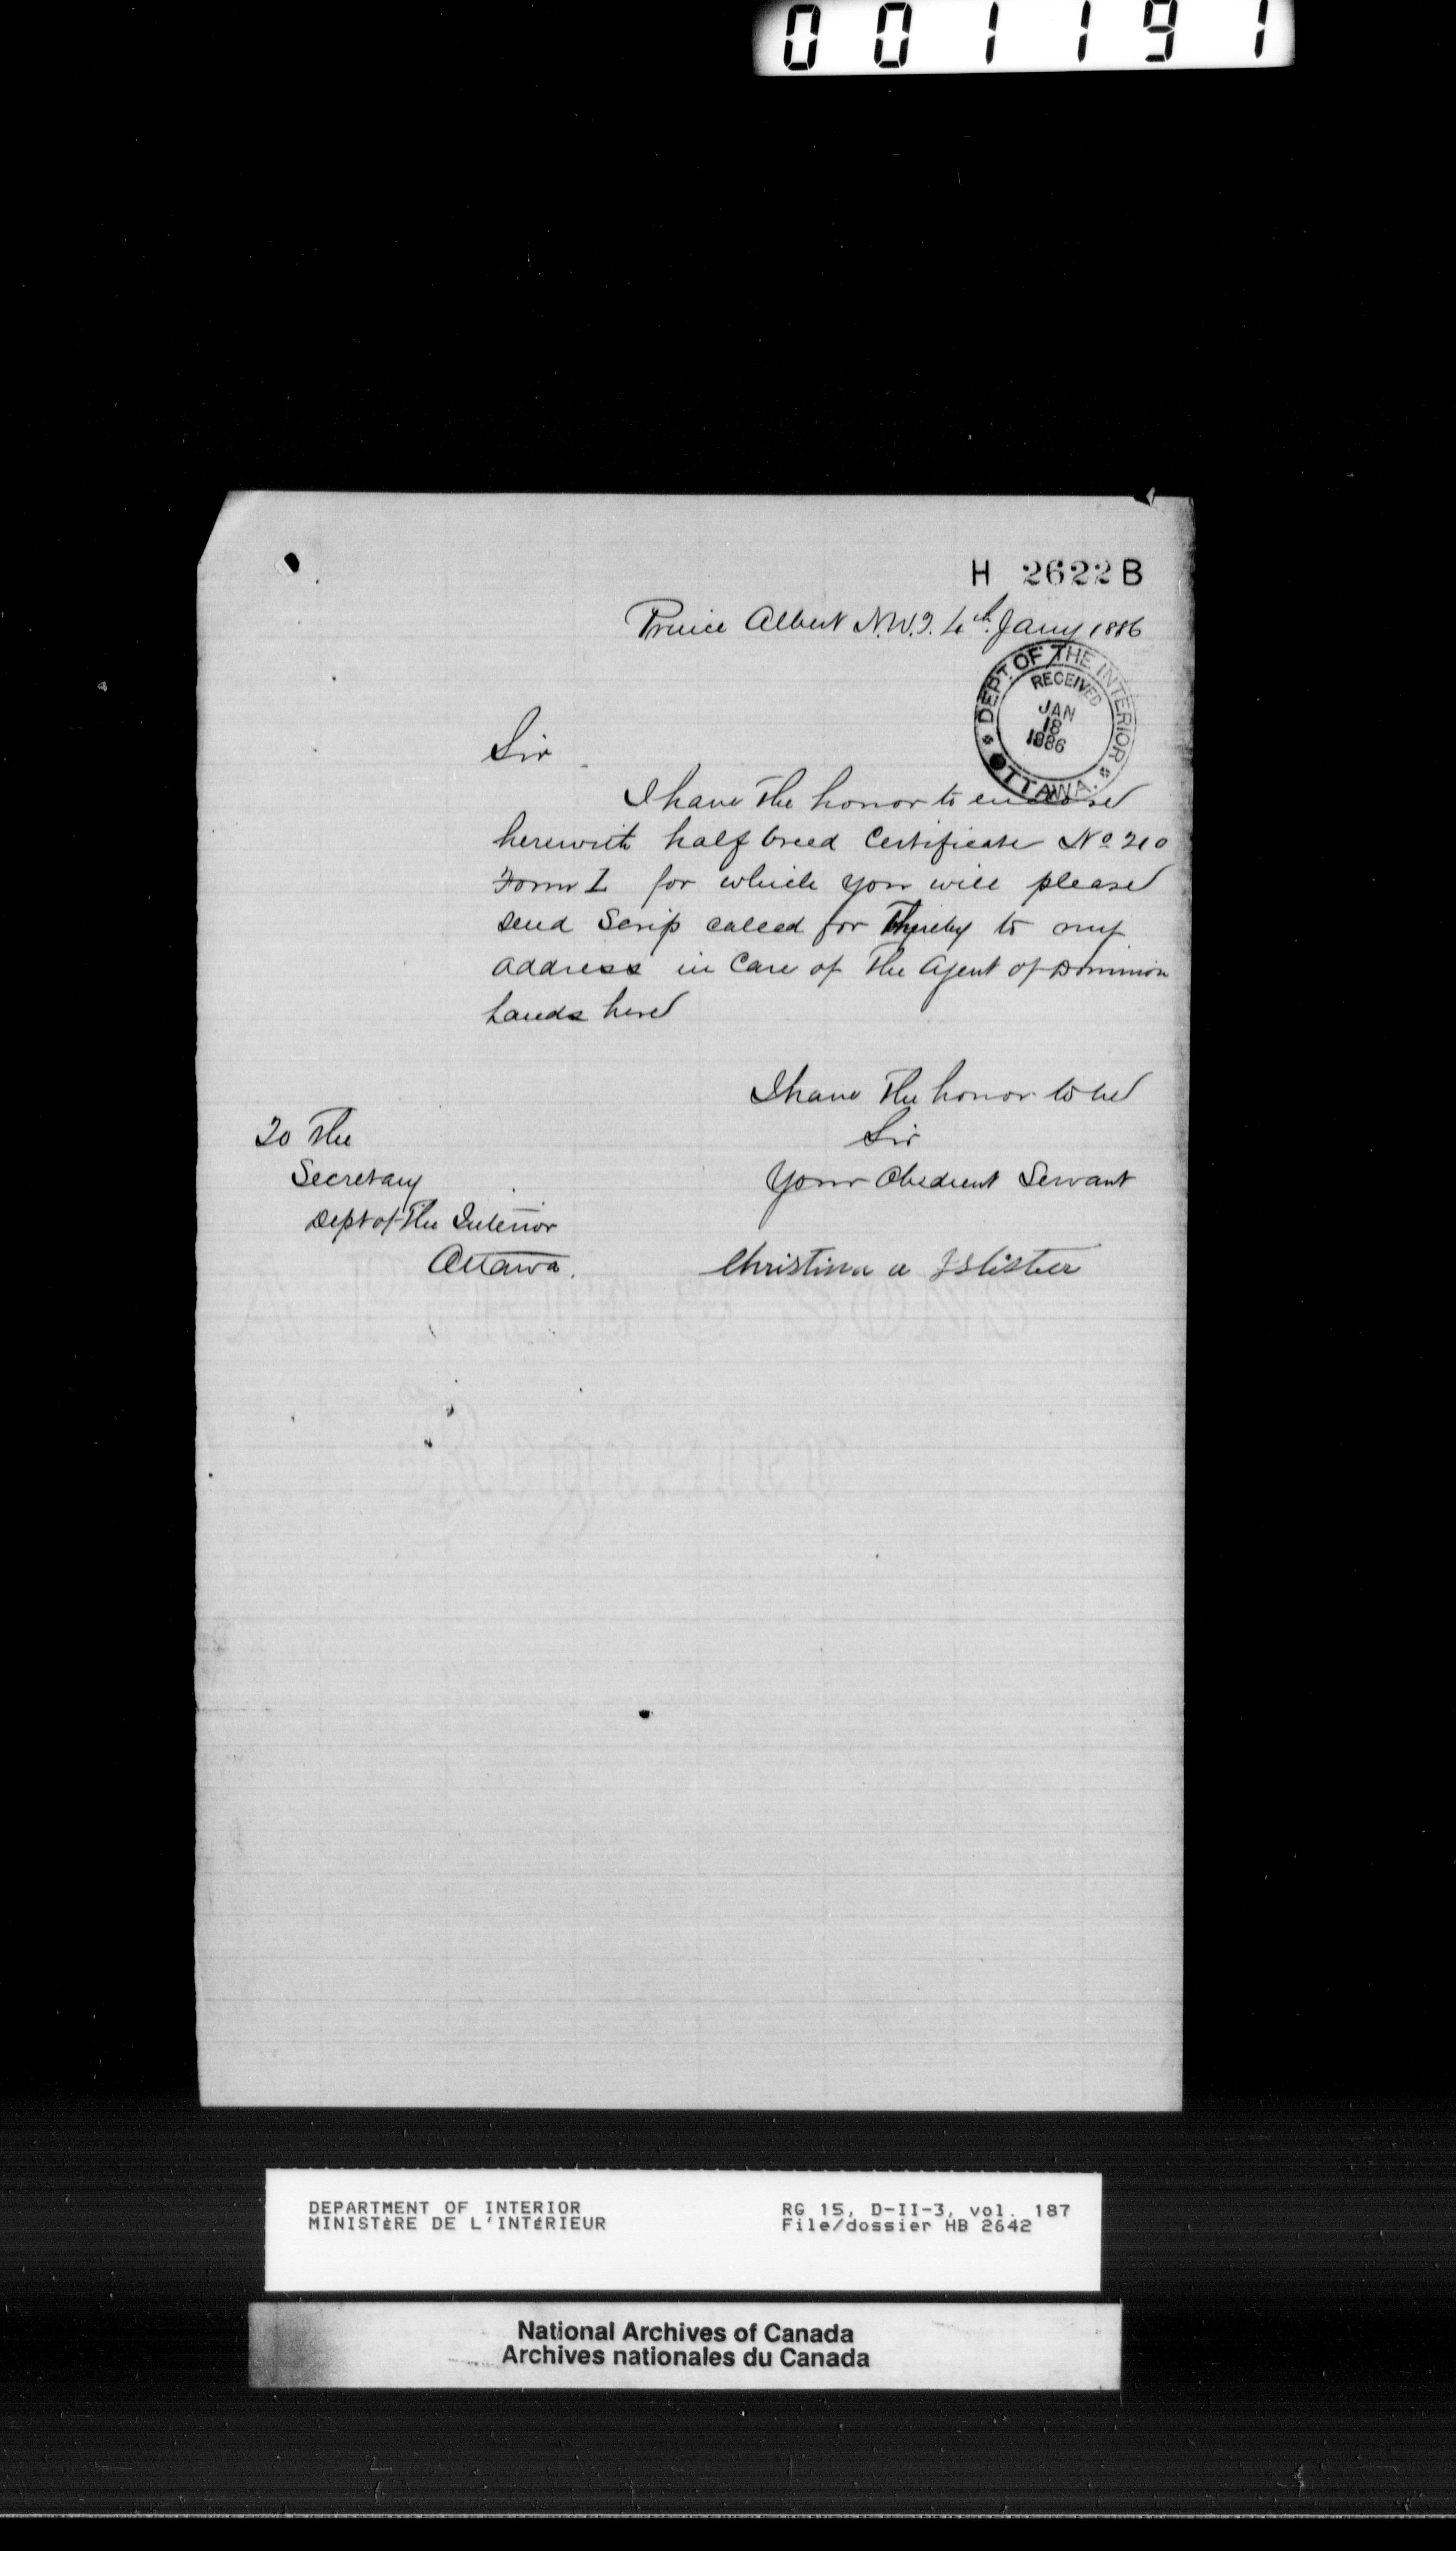 001191
H 2622 B
Prince Albert N.W.T. 4th Jany 1886
DEPT. OF THE INTERIOR
RECEIVED
JAN
18
1886
OTTAWA.
Sir
I have the honor to enclose
herewith half breed Certificate No 210
Form I for which you will please
send Scrip called for thereby to my
address in Care of the Agent of Dominion
Lands here
I have the honor to be
Sir
Your Obedient Servant
Christina a
To the
Secretary
Dept of the Interior
Ottawa.
DEPARTMENT OF INTERIOR
MINISTÈRE DE L'INTÉRIEUR
RG 15, D-II-3, vol. 187
File/dossier HB 2642
National Archives of Canada
Archives nationales du Canada